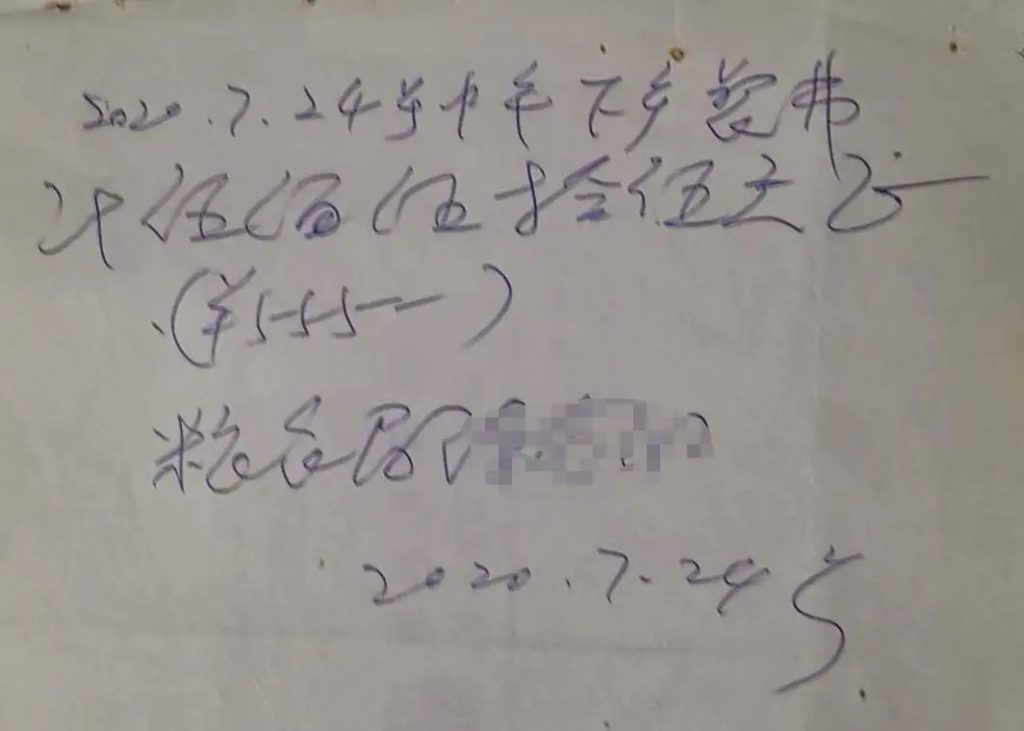 2020.7.24号中午下乡餐费
计伍佰伍拾伍元正
(¥555—)
粮仓
2020.7.24号